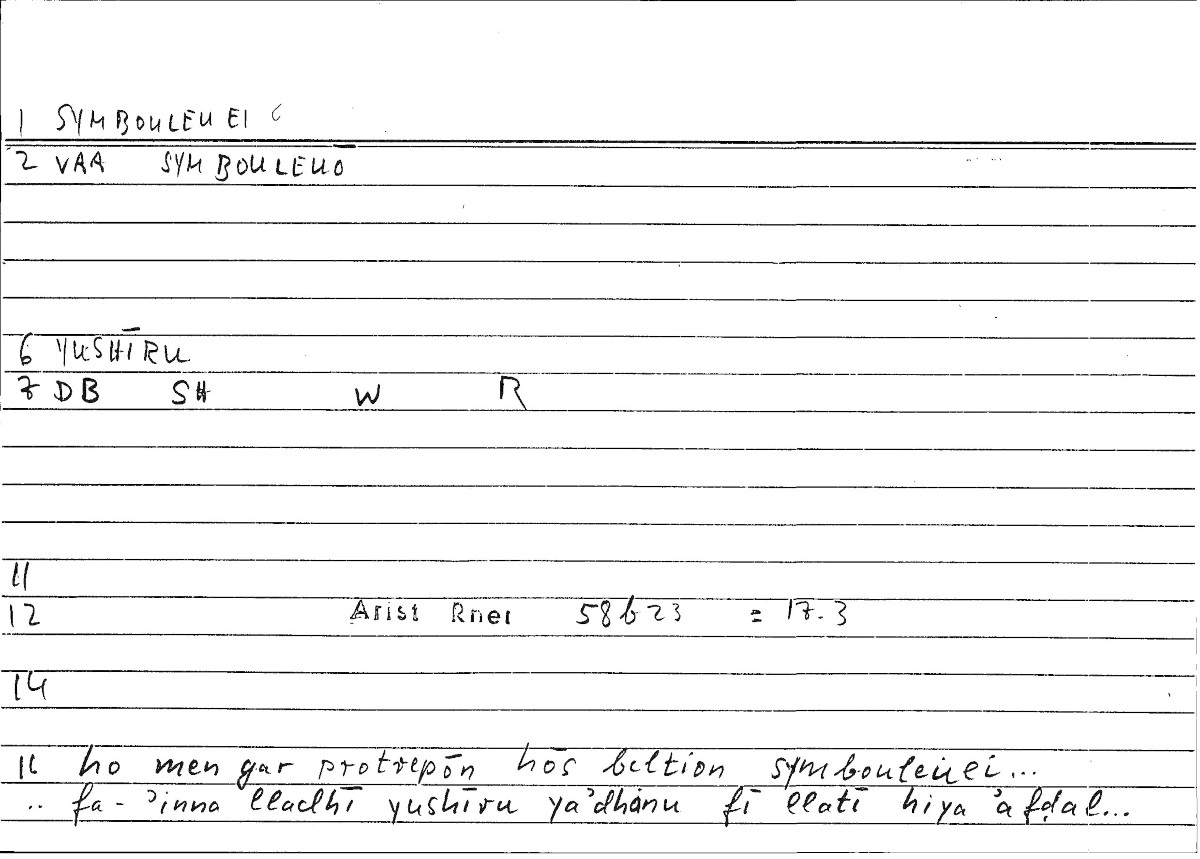 1 SYMBOULEUEI
2 VAA SYMBOULEUŌ
6 YUSHĪRU
7 DB SH W R
11
12 Arist Rhet 58b23 = 17.3
14
16 ho men gar protrepōn hōs beltion symbouleúei...
.. fa-ʾinna lladhī yushīru yaʾdhanu fī llatī hiya ʾafḍal...